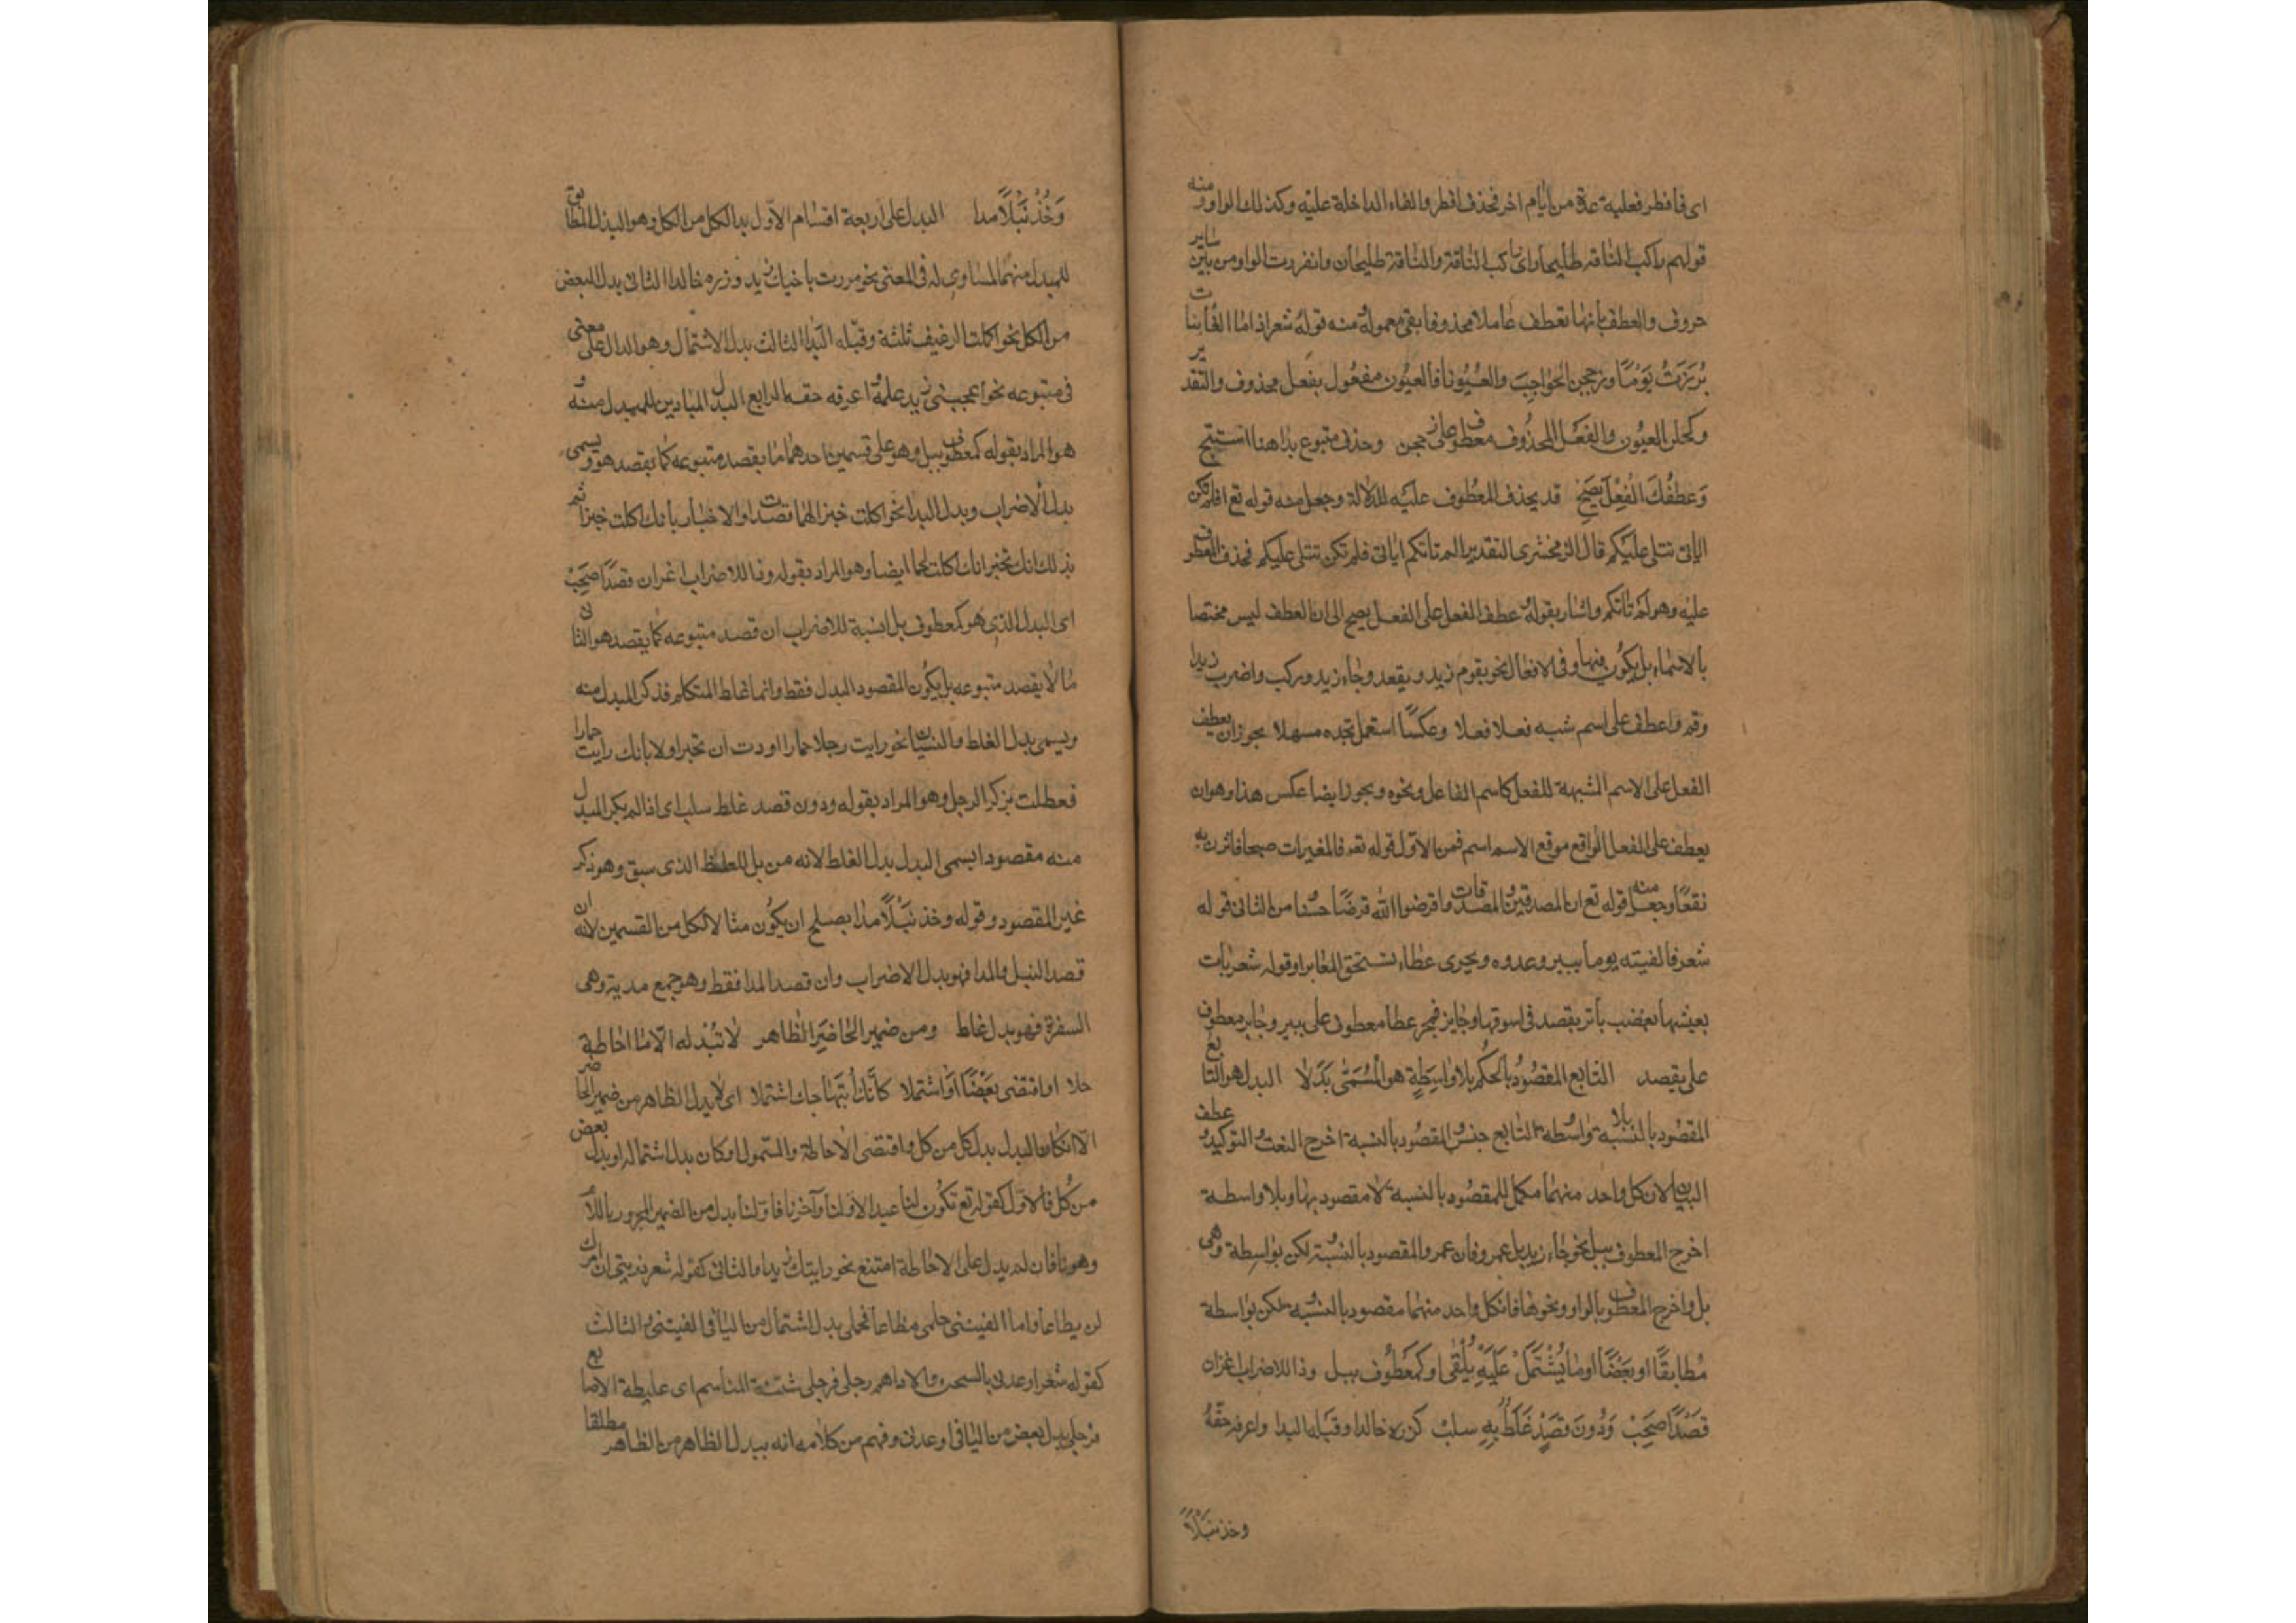 اى فافطر فعليه عدة من ايام اخر فحذف افطر والفاء الداخلة عليه وكذلك الواو ومنه
قولهم راكب الناقة طليحان اى راكب الناقة والناقة طليحان وانفردت الواو من بين ساير
حروف والعطف بانها تعطف عاملا محذوفا بقى معموله منه قوله شعر اذا ما الغانيات
برزت يَوْمًا وزججن الحَواجِبَ والعُيُونا فالعيُون مفعُول بفعل محذوف والتقدير
وكحلن العيُون والفعَل المحذوف معطوف على زججن وحذف متبوع بدا هنا استبح
وَعَطفُكَ الْفِعْلَ يَصَح قد يحذف المعطوف عليه للدلالة وجعل منه قوله تع افلم تكن
اياتى تتلى عليكم قال الزمخشرى التقدير الم تاتكم اياتى فلم تكن تتلى عليكم فحذف المعطوف
عليه وهو الم تاتكم واشار بقوله وعطف الفعل على الفعل يصح الى ان العطف ليس مختصا
بالاسماء بل يكون فيها وفى الافعال نحو يقوم زيد ويقعد وجاء زيد وركب واضرب زيدا
وقم واعطف على اسم شبه فعل فعلا وعكسًا استعمل تجده سهلا يجوز ان يعطف
الفعل على الاسم المشبهة للفعل كاسم الفاعل ونحوه ويجوز ايضا عكس هذا وهو ان
يعطف على الفعل الواقع موقع الاسم اسم فمن الاول قوله تع فالمغيرات صبحا فاثرن به
نقعًا وجعل منه قوله تع ان المصدقين والمصدقات واقرضوا الله قرضًا حسنا من الثانى قوله
شعر فالفيته يوما يبير عدوه ويجرى عطاء يستحق المعابرا وقوله شعر بات
يعيشها بعضب باتر يقصد فى اسوقها وجايز فمجر عطا معطوف على يبير وجايز معطوف
على يقصد التابع المقصُودُ بالحكم بلا واسِطَةٍ هو المُسَمّى بَدَلا البدل هو التابع
المقصُود بالنسبة بلا واسطة التابع جنس المقصُود بالنسبة اخرج النعت والتوكيد وعطف
البيان لان كل واحد منهما مكمل للمقصُود بالنسبة لا مقصود بها وبلا واسطة
اخرج المعطوف ببل نحو جاء زيد بل عمرو فان عمرو المقصود بالنسبة لكن بواسطة وهى
بل واخرج المعطوف بالواو ونحوها فان كل واحد منهما مقصود بالنسبة لكن بواسطة
مُطابقًا او بَعْضًا او ما يُشْتَمَلْ عَلَيْهِ يُلْقَى او كمَعْطُوف ببل وذا للاضراب اغزان
قصْدًا صَحِبْ وَدُونَ قصْدٍ غَلَطٌ بِهِ سلبْ كزره خالدا وقبله اليدا واعرفه حقّهُ
وخذ نبلاً
وَخُذْ نَبْلاً مدا البدل على اربعة اقسام الاول بدل الكل من الكل وهو البدل المطابق
للمبدل منه المساوى له فى المعنى نحو مررت باخيك زيد وزره خالدا الثانى بدل البعض
من الكل نحو اكلت الرغيف ثلثة وقبّله اليدا الثالث بدل الاشتمال وهو الدال على معنى
فى متبوعه نحو اعجبنى زيد علمه واعرفه حقه الرابع البدل المباين للمبدل منه و
هو المراد بقوله كمعطوف ببل وهو على قسمين احدهما ما يقصد متبوعه كما يقصد هو ويسمى
بدل الاضراب وبدل البدا نحو اكلت خبزا لحما قصدت اولا الاخبار بانك اكلت خبزا ثم
بذلك انك تخبر انك اكلت لحما ايضا وهو المراد بقوله وذا للاضراب اغزان قصدًا صحِبْ
اى البدل الذى هو كمعطوف بل انسبه للاضراب ان قصد متبوعه كما يقصد هو الثانى
ما لا يقصد متبوعه بل يكون المقصود البدل فقط وانما غلط المتكلم فذكر المبدل منه
ويسمى بدل الغلط والنسيان نحو رايت رجلا حمارا اردت ان تخبر اولا بانك رايت حمارا
فغلطت بذكر الرجل وهو المراد بقوله ودون قصد غلط سلب اى اذا لم يكن المبدل
منه مقصودا يسمى البدل بدل الغلط لانه مزيل للغلط الذى سبق وهو ذكر
غير المقصود وقوله وخذ نَبْلًا مدا يصلح ان يكُون مثالا لكل من القسمين لانه ان
قصد النبل والمدا فهو بدل الاضراب وان قصد المدا فقط وهو جمع مدية وهى
السفرة فهو بدل غلط ومن ضمير الحاضِرِ الظاهر لا تُبْدله الا ما احاطة
جلا او اقتضى بَعْضًا او اشتملا كأنّك ابْتِهاجك اشتملا اى لا يبدل الظاهر من ضمير الحاضر
الا ان كان البدل بدل كل من كل واقتضى الاحاطة والشمول او كان بدل اشتمال او بدل بعض
من كُل فالاول كقوله تع تكون لنا عيدا لاولنا وآخرنا فاولنا بدل من الضمير المجرور باللام
وهو نا فان لم يدل على الاحاطة امتنع نحو رايتك زيدا والثانى كقوله شعر ذرينى ان امرك
لن يطاعا وما الفيتنى حلمى مطاعا فحلمى بدل اشتمال من اليا فى الفيتنى والثالث
كقوله شعر اوعدنى بالسجن والاداهم رجلى فرجلى شثنة المناسم اى غليظة الاصابع
فرجلى بدل بعض من اليا فى اوعدنى وفهم من كلامه انه يبدل الظاهر من الظاهر مطلقا